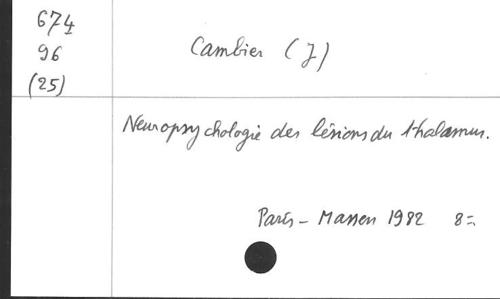 674
96
(25)
Cambier (J)
Neuropsychologie des lésions du thalamus.
Paris - Masson 1982 8=